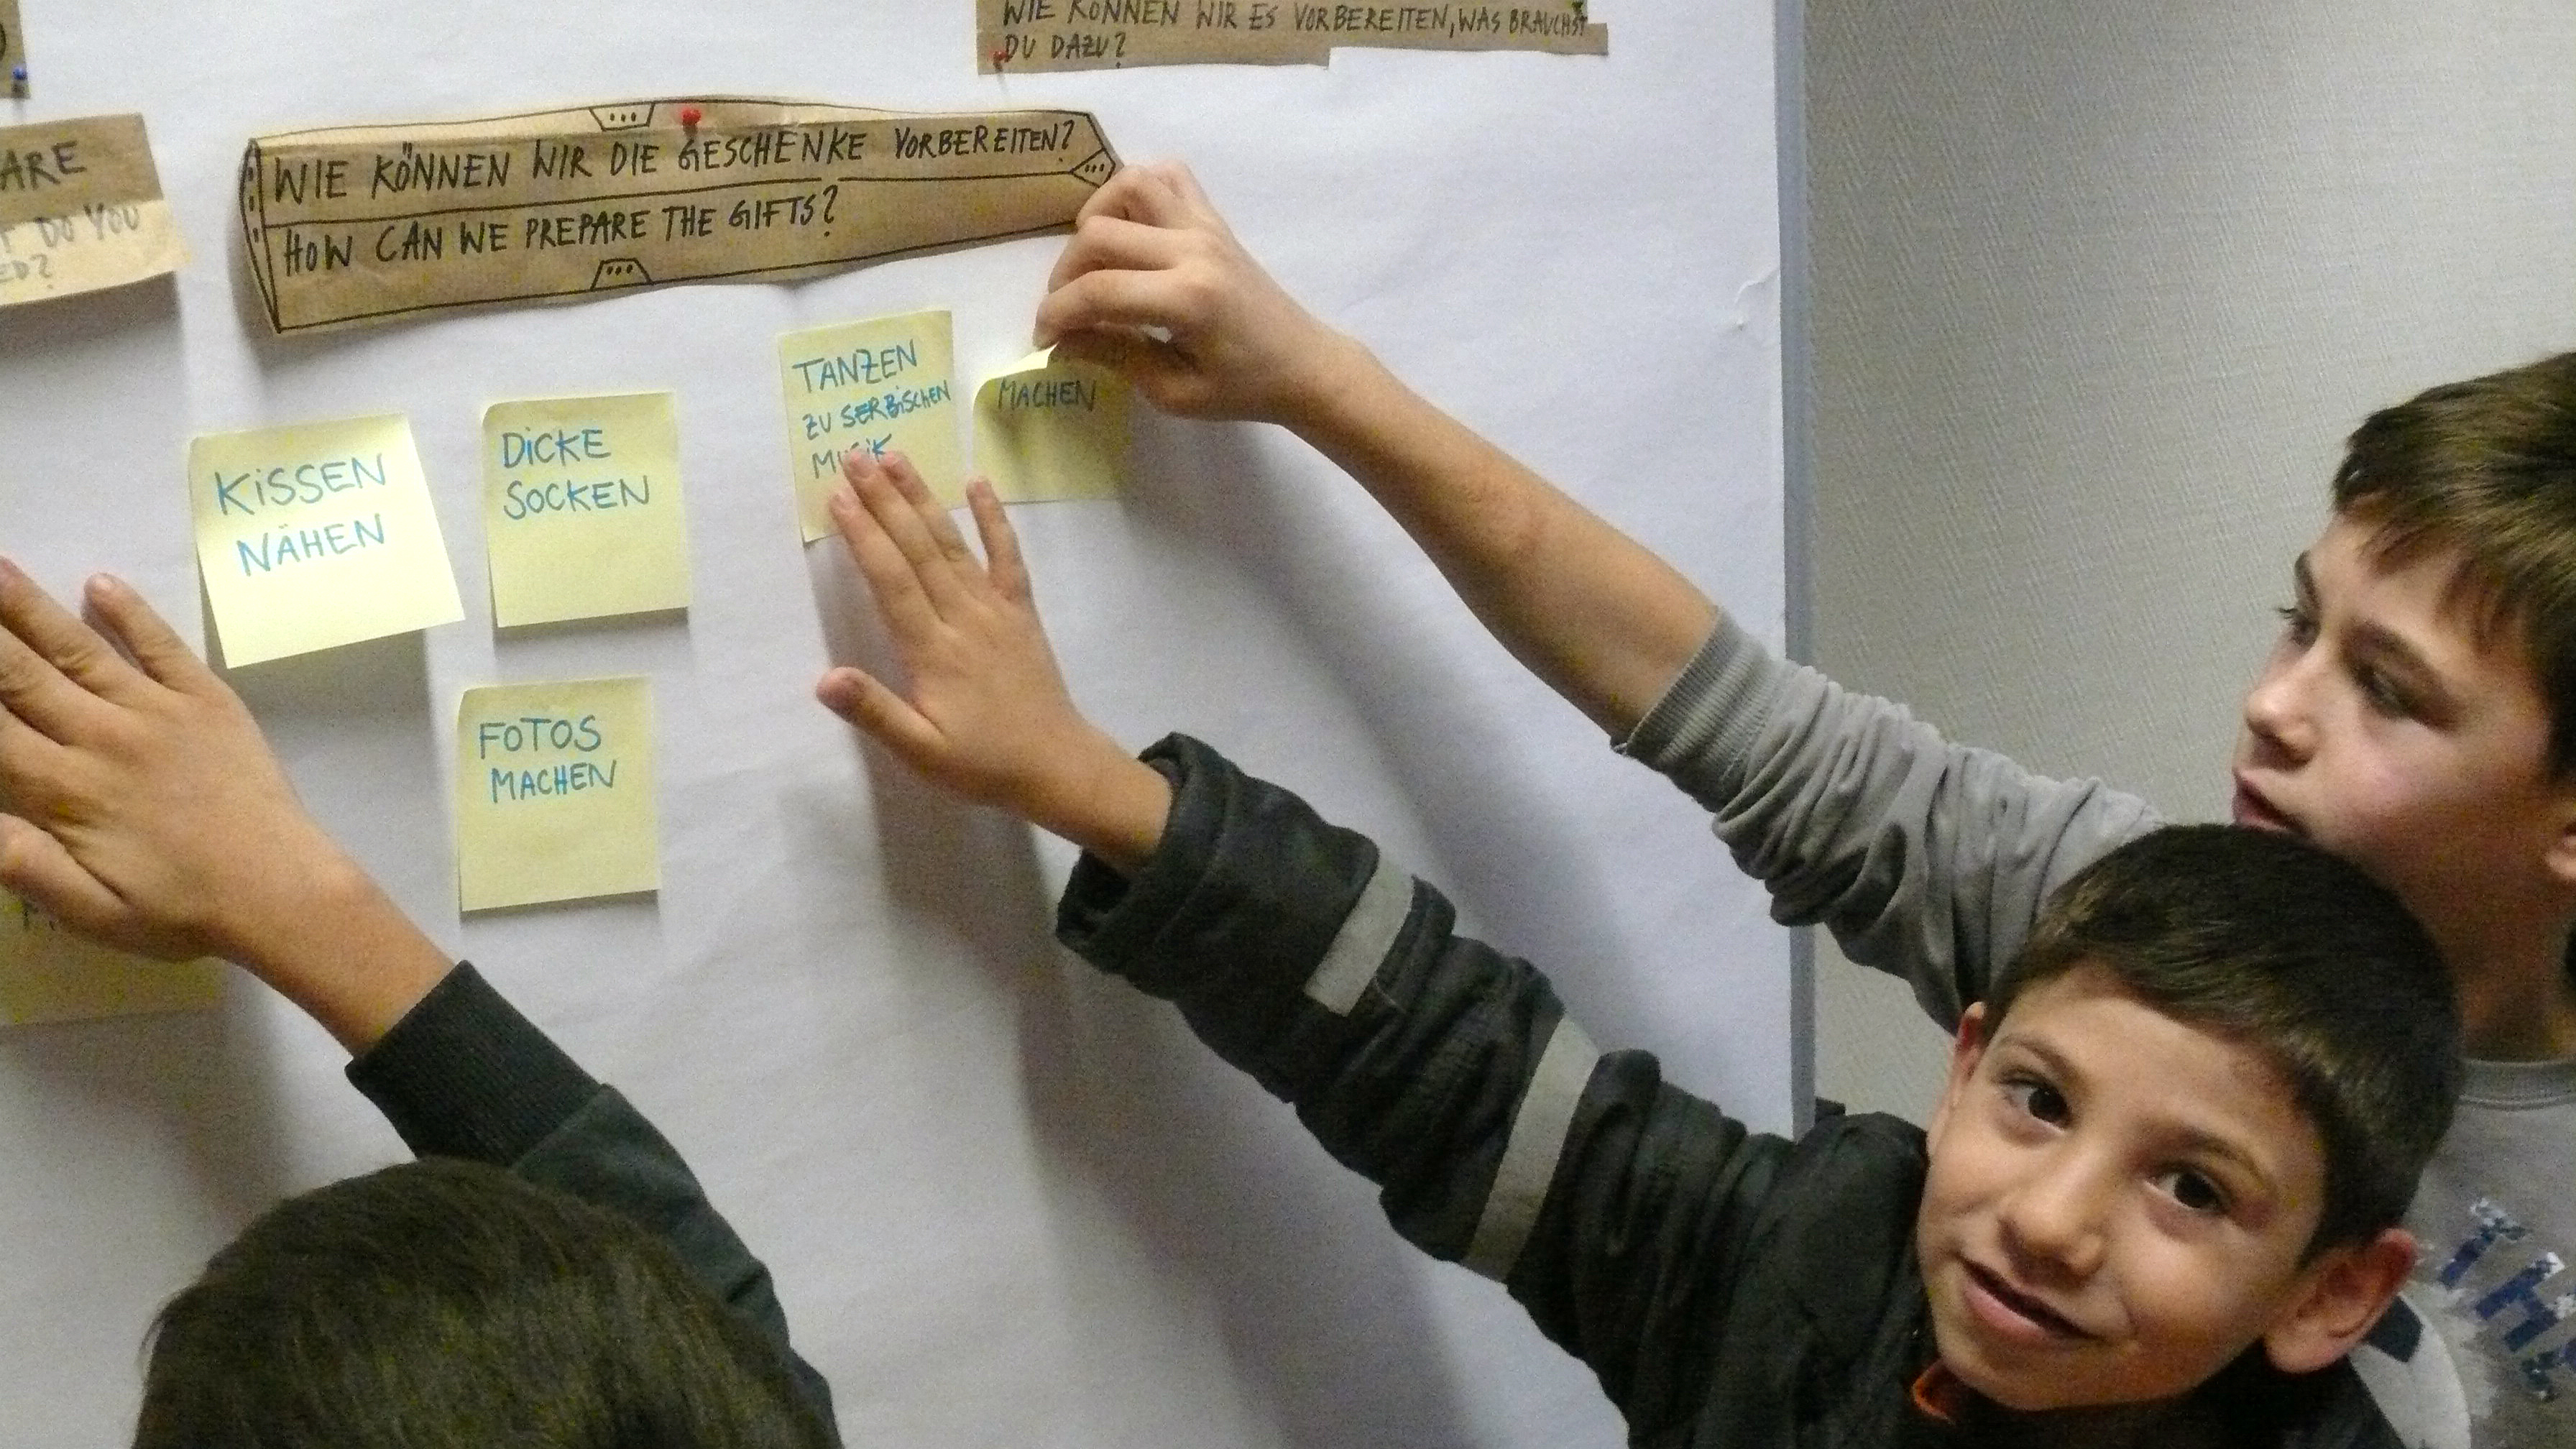 WIE KÖNNEN WIR ES VORBEREITEN, WAS BRAUCHST
DU DAZU?
WIE KÖNNEN WIR DIE GESCHENKE VORBEREITEN?
HOW CAN WE PREPARE THE GIFTS?
ARE
DO YOU
ED?
KISSEN
NÄHEN
DICKE
SOCKEN
TANZEN
ZU SERBISCHEN
MUSIK
MACHEN
FOTOS
MACHEN